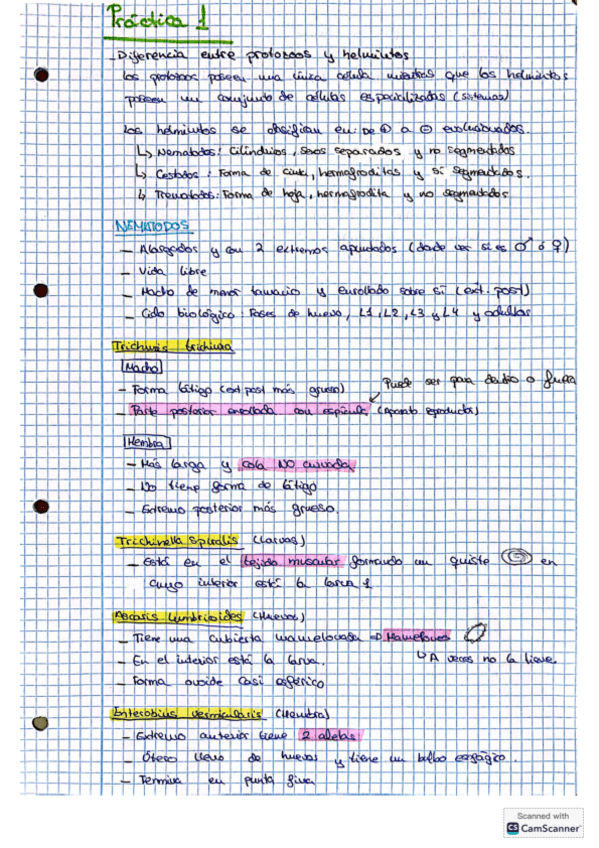 Práctica 1
- Diferencia entre protozoos y helmintos
Los protozoos poseen una única célula mientras que los helmintos
poseen un conjunto de células especializadas (sistemas)
Los helmintos se clasifican en: De ⊕ a ⊖ evolucionados.
↳ Nematodos: Cilíndricos, sexos separados y no segmentados
↳ Cestodos: Forma de cinta, hermafroditas y sí segmentados.
↳ Trematodos: Forma de hoja, hermafrodita y no segmentados
NEMATODOS
- Alargados y con 2 extremos apuntados (donde ver si es ♂ ó ♀)
- Vida libre
- Macho de menor tamaño y enrollado sobre sí (ext. post)
- Ciclo biológico: Fases de huevo, L1, L2, L3 y L4 y adultos
Trichuris trichiura
Macho
- Forma látigo (ext post más grueso)
Puede ser por dentro o fuera
- Parte posterior enrollada con espícula (aparato reproductor)
Hembra
- Más larga y cola NO curvada
- No tiene forma de látigo
- Extremo posterior más grueso.
Trichinella Spiralis (Larvas)
- Está en el tejido muscular formando un quiste en
cuyo interior está la larva 1
Ascaris Lumbricoides (Huevos)
- Tiene una cubierta mamelonada ⇒ Mamelones
- En el interior está la larva.
↳ A veces no la lleva.
- Forma ovoide casi esférico
Enterobius vermicularis (Hembra)
- Extremo anterior tiene 2 aletas
- Útero lleno de huevos y tiene un bulbo esofágico.
- Termina en punta fina
Scanned with
CS CamScanner